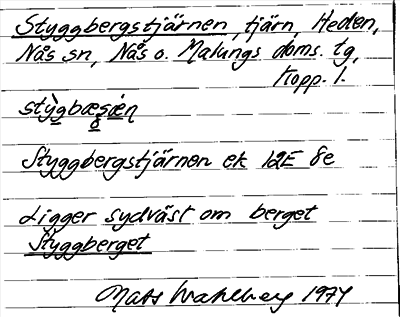 Styggbergstjärnen, tjärn, Heden,
Nås sn, Nås o. Malungs doms. tg,
Kopp. l.
Styggbergstjärnen ek 12E 8e
Ligger sydväst om berget
Styggberget
Mats Wahlberg 1974